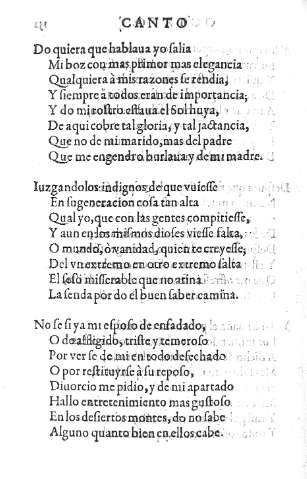 CANTO
Do quiera que hablaua yo salia
Mi boz con mas primor mas elegancia
Qualquiera à mis razones se rendia,
Y siempre à todos eran de importancia,
Y do mi rostro estaua el Sol huya,
De aqui cobre tal gloria, y tal jactancia,
Que no de mi marido, mas del padre
Que me engendro burlaua y de mi madre.
Iuzgandolos indignos de que vuiesse
En su generacion cosa tan alta
Qual yo, que con las gentes compitiesse,
Y aun en los mismos dioses viesse falta,
O mundo, ò vanidad, quien te creyesse,
Del vn extremo en otro extremo salta
El seso misserable que no atina
La senda por do el buen saber camina.
No se si ya mi esposo de enfadado,
O de affligido, triste y temeroso
Por ver se de mi en todo desechado
O por restituyrse à su reposo,
Diuorcio me pidio, y de mi apartado
Hallo entretenimiento mas gustoso
En los desiertos montes, do no sabe
Alguno quanto bien en ellos cabe.